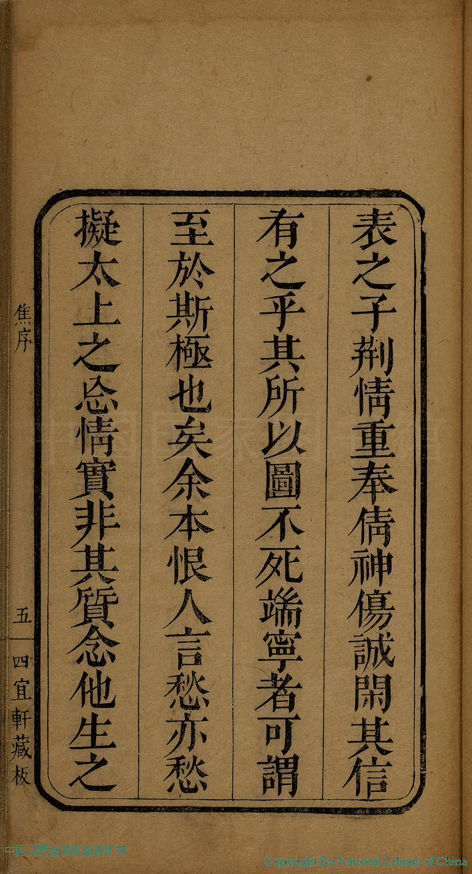 表之子荆情重奉倩神傷誠閑其信
有之乎其所以圖不死端寧者可謂
至於斯極也矣余本恨人言愁亦愁
擬太上之忘情實非其質念他生之
焦序
五
四宜軒藏板
Copyright by National Library of China